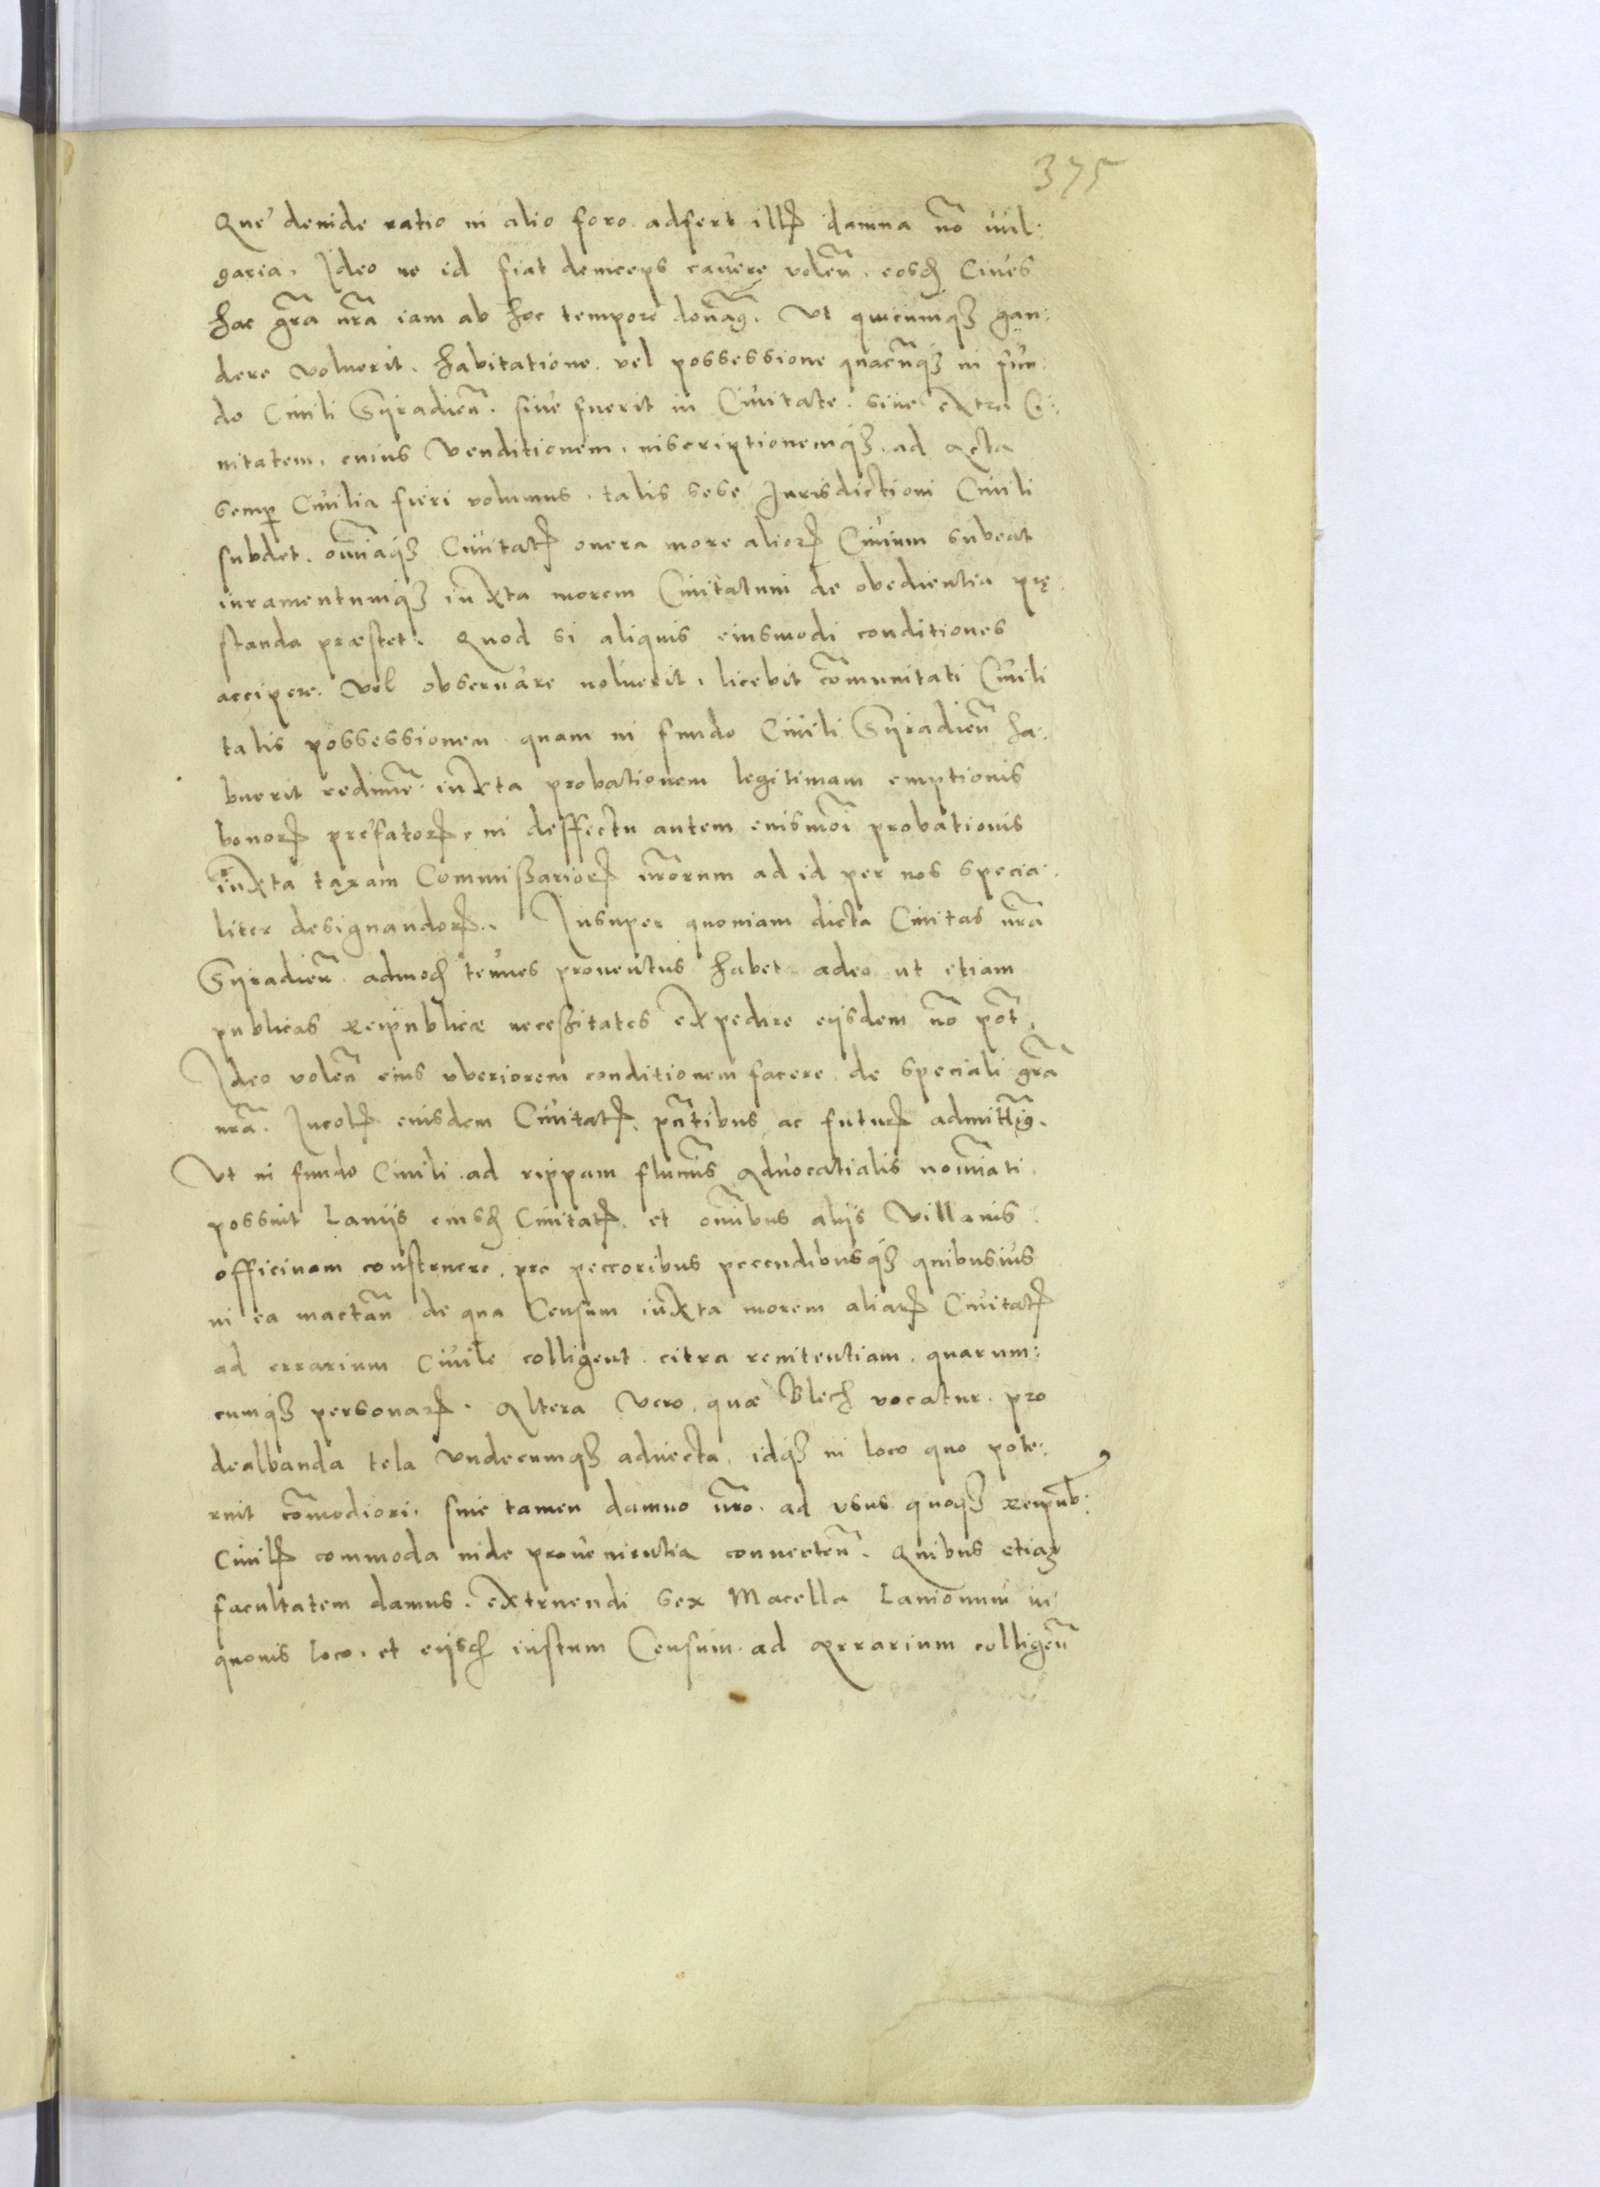 375
Que deinde ratio in alio foro adfert illꝭ damna nõ vul:
garia. Ideo ne id fiat deinceps cavere volẽn. eosꝗ Cives
hac gr̃a nr̃a iam ab hoc tempore donãꝰ. Ut quicumqꝫ gau:
dere voluerit. habitatione. vel possessione quacũqꝫ in fun:
do Civili Syradieñ. sive fuerit in Civitate. sive extra Ci:
vitatem. cuius venditionem. inscriptionemqꝫ. ad acta
semꝑ Civilia fieri volumus. talis sese Jurisdictioni Civili
subdet. om̃iaqꝫ Civitatꝭ onera more alioꝝ Civium subeat
iuramentumqꝫ iuxta morem Civitatum de obedientia prę:
standa præstet. Quod si aliquis eiusmodi conditiones
accipere. vel observare noluerit. licebit cõmunitati Civili
talis possessionem quam in fundo Civili Syradieñ ha:
buerit redimẽ. iuxta probationem legitimam emptionis
bonoꝝ prefatoꝝ. in deffectu autem euismõi probationis
iuxta taxam Commissarioꝝ nr̃orum ad id per nos specia:
liter designandoꝝ. Insuper quoniam dicta Civitas nr̃a
Syradieñ. admoꝗ tenues proventus habet adeo ut etiam
publicas reipublicæ necessitates expedire eiisdem nõ põt.
Ideo voleñ eius uberiorem conditionem facere. de speciali gr̃a
nr̃a. Incolꝭ euisdem Civitatꝭ. pñtibus ac futurꝭ admittĩꝰ.
Ut in fundo Civili. ad rippam flumĩs Advocatialis nomĩati
possint Laniis eiusꝗ Civitatꝭ. et om̃ibus aliis Villanis
officinam construere. pro peccoribus pecudibusqꝫ quibusvis
in ea mactañ de qua Censum iuxta morem aliaꝝ Civitatꝭ
ad errarium Civile colligent. citra renitentiam. quarum:
cumqꝫ personaꝝ. Altera vero. quæ Blech vocatur. pro
dealbanda tela undecumqꝫ advecta. idqꝫ in loco quo pote:
runt cõmodiori. sine tamen damno nr̃o. ad usus quoqꝫ reipub:
Civilꝭ commoda inde provenientia converteñ. Quibus etiaꝫ
facultatem damus. extruendi sex Macella Lanionum in
quovis loco. et eiisꝗ iustum Censum. ad ærrarium colligeñ